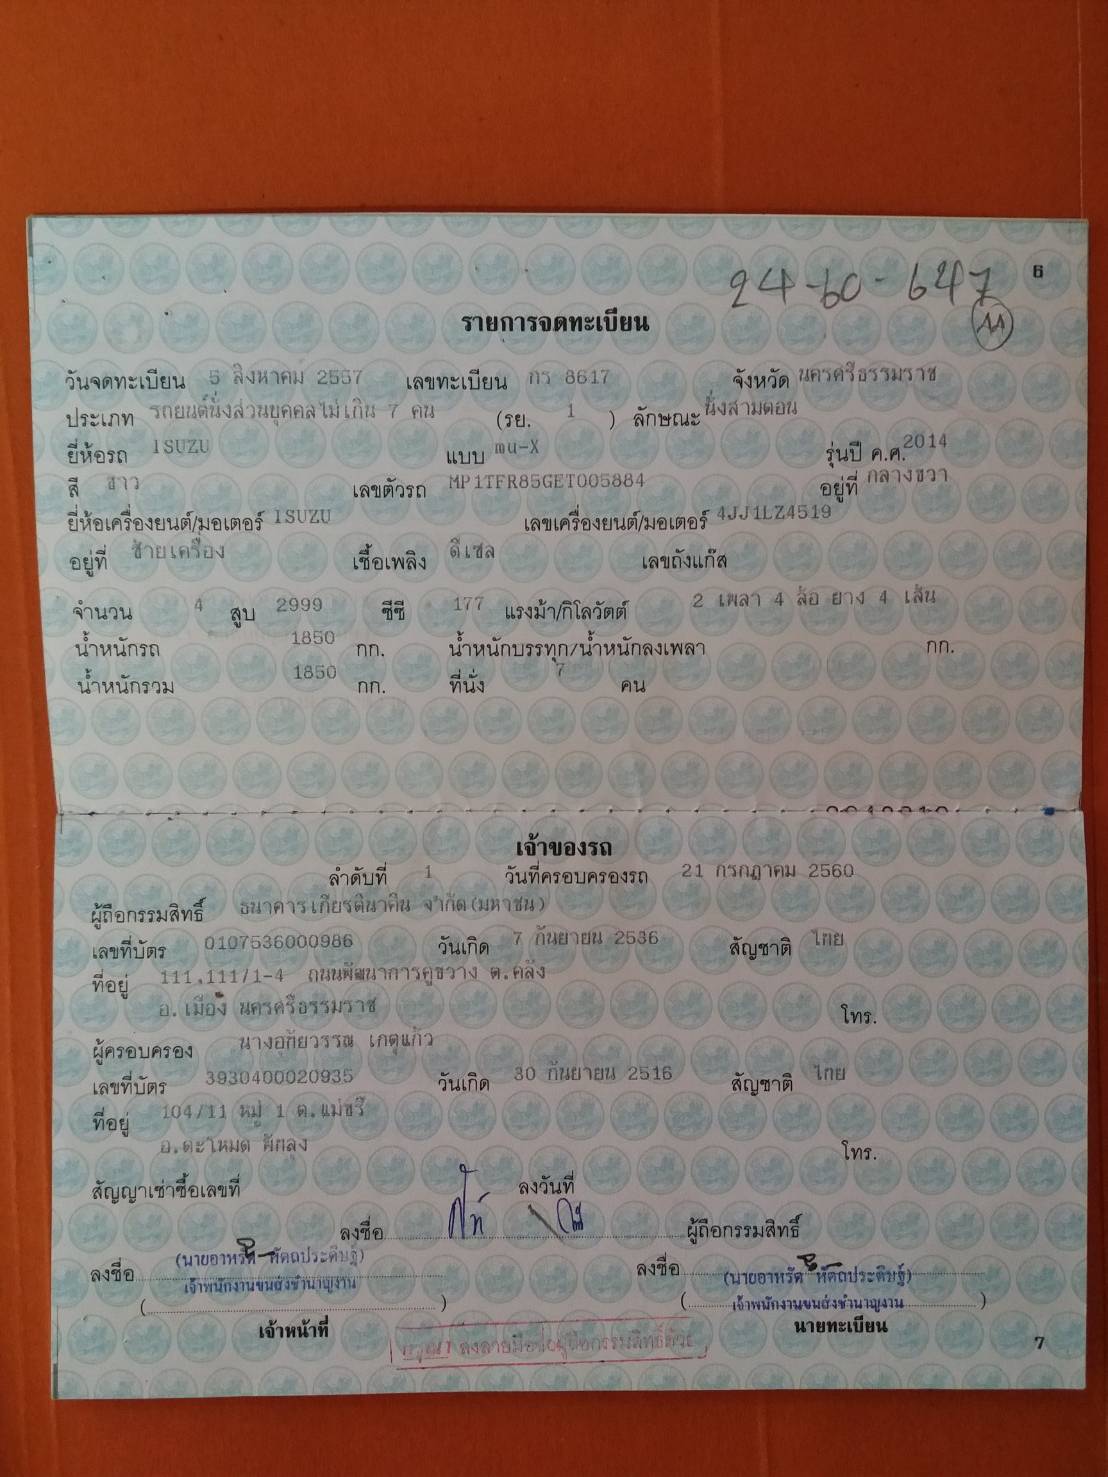 24-60-647
11
6
รายการจดทะเบียน
วันจดทะเบียน 5 สิงหาคม 2557 เลขทะเบียน กร 8617 จังหวัด นครศรีธรรมราช
ประเภท รถยนต์นั่งส่วนบุคคลไม่เกิน 7 คน (รย. 1 ) ลักษณะ นั่งสามตอน
ยี่ห้อรถ ISUZU แบบ mu-X รุ่นปี ค.ศ. 2014
สี ขาว เลขตัวรถ MP1TFR85GET005884 อยู่ที่ กลางขวา
ยี่ห้อเครื่องยนต์/มอเตอร์ ISUZU เลขเครื่องยนต์/มอเตอร์ 4JJ1LZ4519
อยู่ที่ ซ้ายเครื่อง เชื้อเพลิง ดีเซล เลขถังแก๊ส
จำนวน 4 สูบ 2999 ซีซี 177 แรงม้า/กิโลวัตต์ 2 เพลา 4 ล้อ ยาง 4 เส้น
น้ำหนักรถ 1850 กก. น้ำหนักบรรทุก/น้ำหนักลงเพลา กก.
น้ำหนักรวม 1850 กก. ที่นั่ง 7 คน
เจ้าของรถ
ลำดับที่ 1 วันที่ครอบครองรถ 21 กรกฎาคม 2560
ผู้ถือกรรมสิทธิ์ ธนาคารเกียรตินาคิน จำกัด(มหาชน)
เลขที่บัตร 0107536000986 วันเกิด 7 กันยายน 2536 สัญชาติ ไทย
ที่อยู่ 111,111/1-4 ถนนพัฒนาการคูขวาง ต.คลัง
อ.เมือง นครศรีธรรมราช โทร.
ผู้ครอบครอง นางอุทัยวรรณ เกตุแก้ว
เลขที่บัตร 3930400020935 วันเกิด 30 กันยายน 2516 สัญชาติ ไทย
ที่อยู่ 104/11 หมู่ 1 ต.แม่ขรี
อ.ตะโหมด พัทลุง โทร.
สัญญาเช่าซื้อเลขที่ ลงวันที่
ลงชื่อ ผู้ถือกรรมสิทธิ์
ลงชื่อ (นายอาหรัด หัตถประดิษฐ์) ลงชื่อ (นายอาหรัด หัตถประดิษฐ์)
เจ้าพนักงานขนส่งชำนาญงาน เจ้าพนักงานขนส่งชำนาญงาน
( ) ( )
เจ้าหน้าที่ นายทะเบียน
กรุณา ลงลายมือชื่อผู้ถือกรรมสิทธิ์ด้วย
7